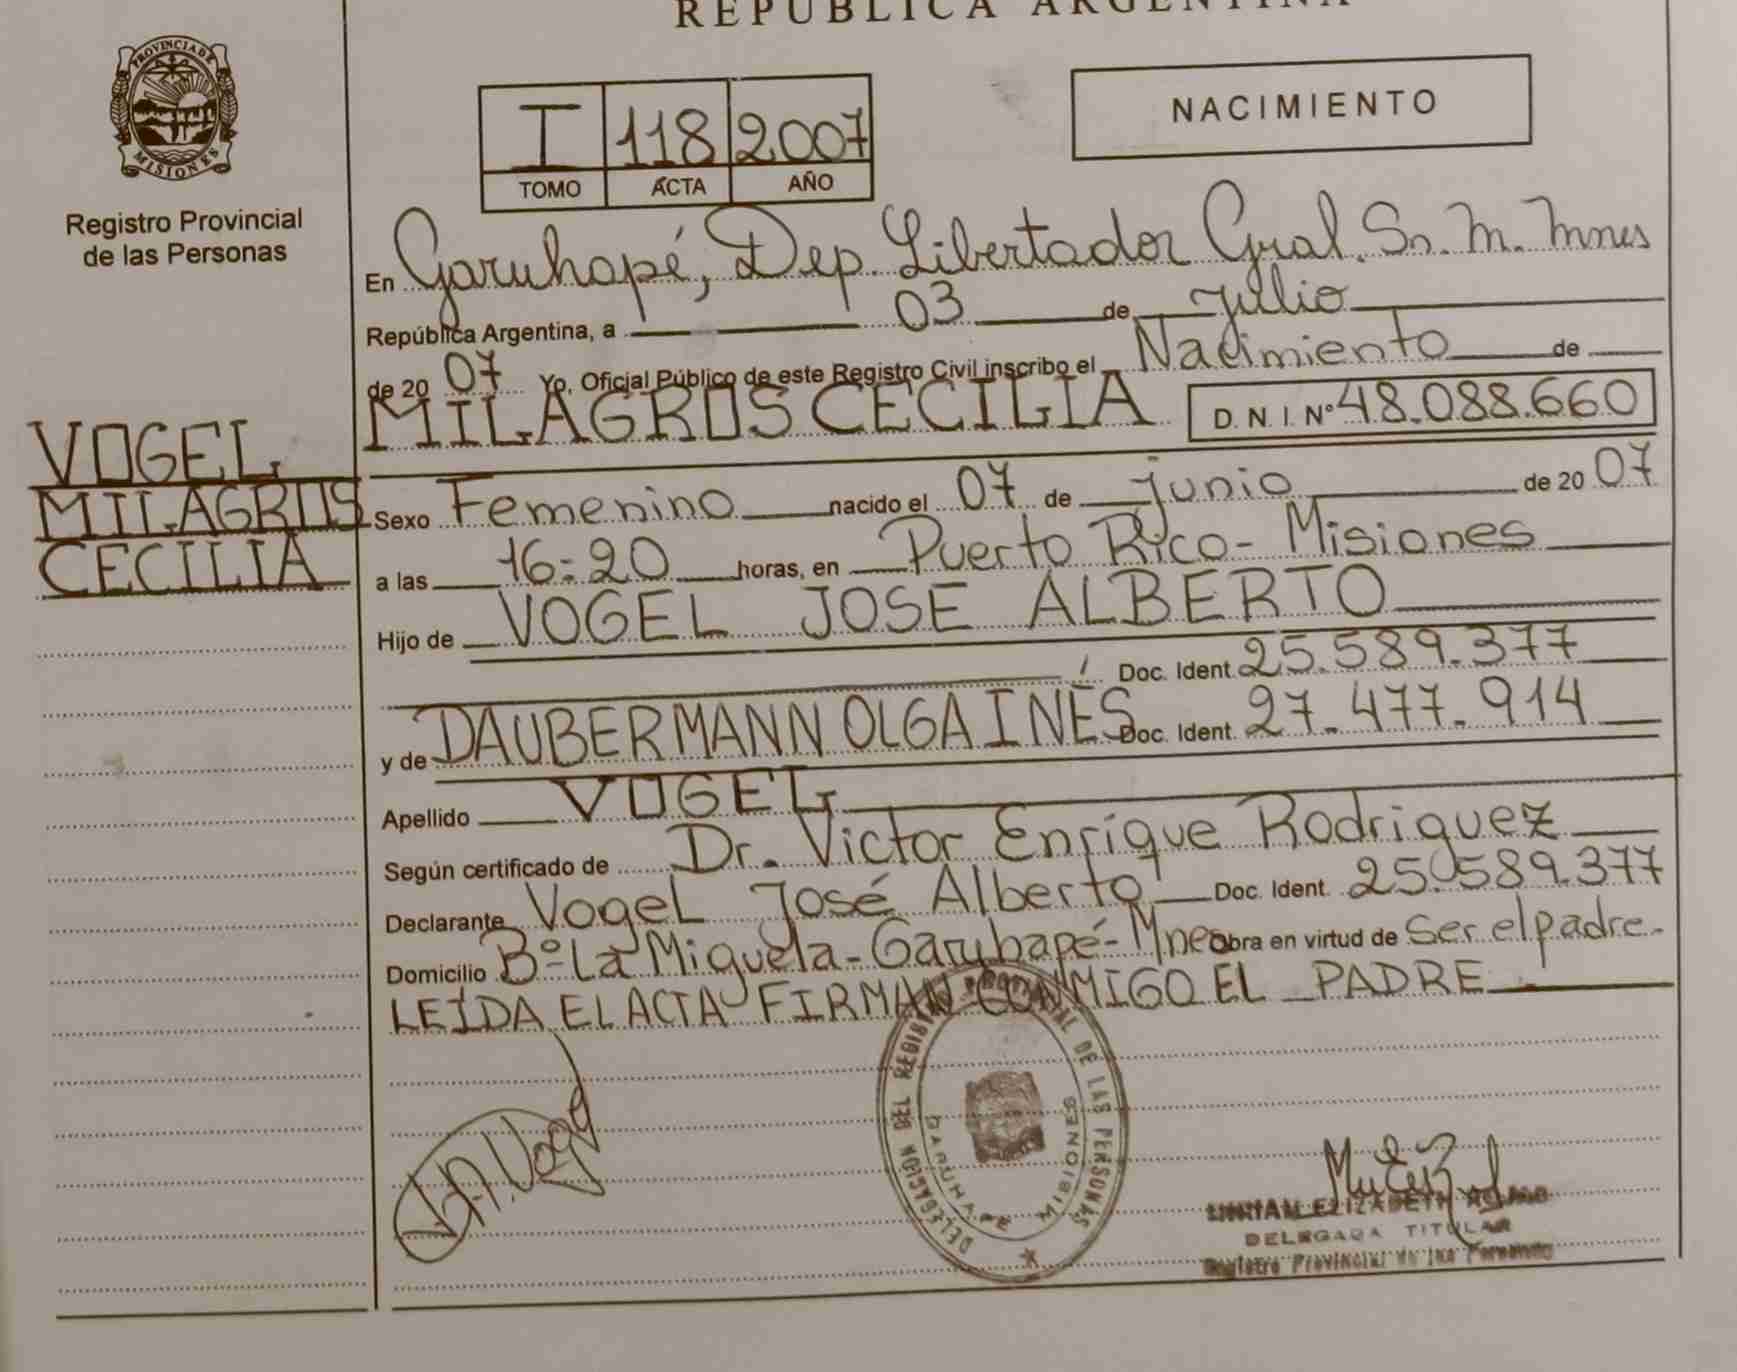 REPUBLICA ARGENTINA
PROVINCIA DE
MISIONES
Registro Provincial
de las Personas
I 118 2007
TOMO ACTA AÑO
NACIMIENTO
En Garuhapé, Dep. Libertador Gral. Sn. M. Mnes
República Argentina, a 03 de julio
de 20 07 Yo, Oficial Público de este Registro Civil inscribo el Nacimiento de
MILAGROS CECILIA D. N. I. Nº 48.088.660
VOGEL
MILAGROS
CECILIA
Sexo Femenino nacido el 07 de junio de 20 07
a las 16:20 horas, en Puerto Rico - Misiones
Hijo de VOGEL JOSE ALBERTO
Doc. Ident. 25.589.377
y de DAUBERMANN OLGA INÉS Doc. Ident. 27.477.914
Apellido VOGEL
Según certificado de Dr. Victor Enrique Rodriguez
Declarante Vogel José Alberto Doc. Ident. 25.589.377
Domicilio Bº La Miguela - Garuhapé - Mnes Obra en virtud de Ser el padre.
LEÍDA EL ACTA FIRMAN CONMIGO EL PADRE
DELEGACION DEL REGISTRO PROVINCIAL DE LAS PERSONAS
GARUHAPE MISIONES
ELIZABETH
DELEGADA TITULAR
Registro Provincial de las Personas